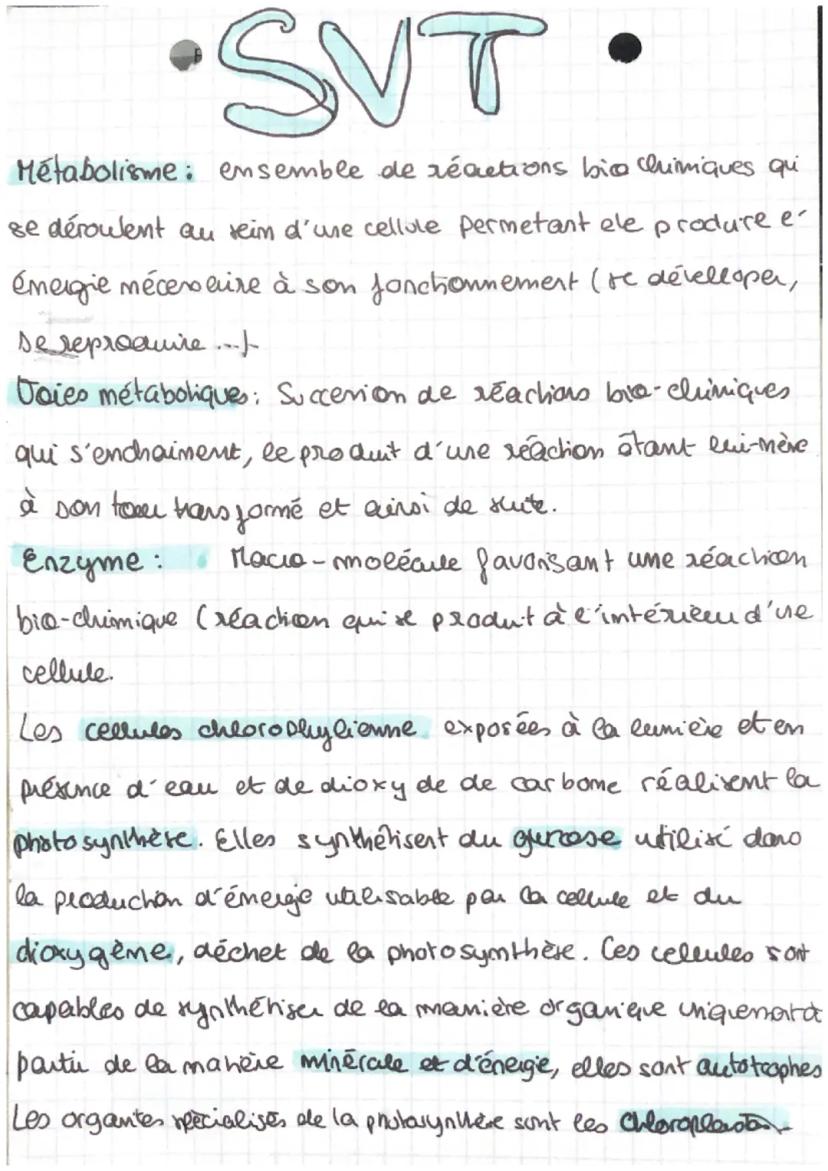 SVT
Métabolisme : ensemble de réactions bio chimiques qui
se déroulent au sein d'une cellule permetant de produire l'
énergie nécessaire à son fonctionnement (se développer,
se reproduire ...)
Voies métaboliques : Succession de réactions bio-chimiques
qui s'enchaiment, le produit d'une réaction étant lui-même
à son tour transformé et ainsi de suite.
Enzyme : Macro-molécule favorisant une réaction
bio-chimique (réaction qui se produit à l'intérieur d'une
cellule.
Les cellules chlorophylienne exposées à la lumière et en
présence d'eau et de dioxyde de carbone réalisent la
photosynthèse. Elles synthétisent du glucose utilisé dans
la production d'énergie utilisable par la cellule et du
dioxygène, déchet de la photosynthèse. Ces cellules sont
capables de synthétiser de la manière organique uniquement à
partir de la matière minérale et d'énergie, elles sont autotrophes
Les organites spécialisés de la photosynthèse sont les chloroplastes